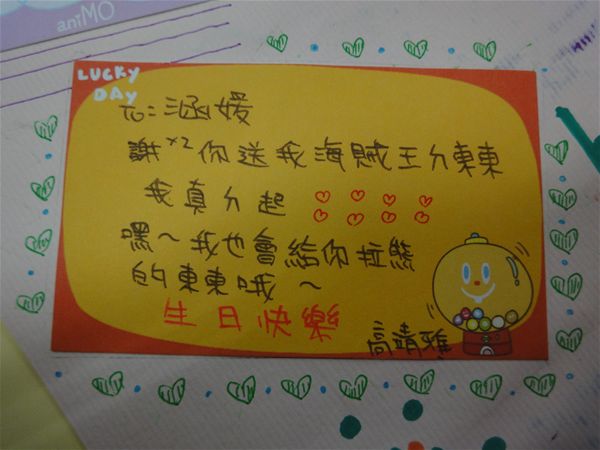 aniMO
LUCKY
DAY
to：涵媛
謝x2你送我海賊王ㄉ東東
我真ㄉ超
嘿～我也會給你拉熊
的東東哦～
生日快樂
高靖雅